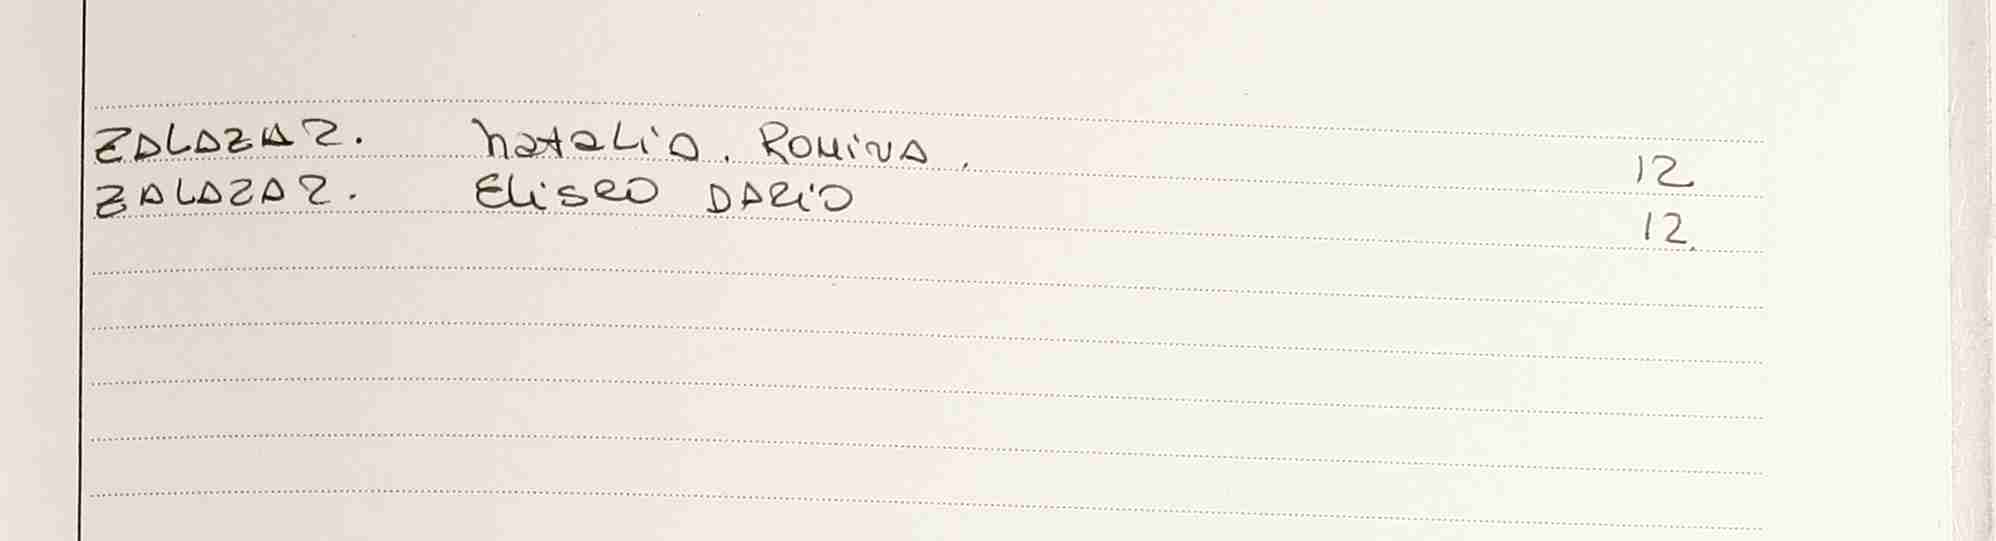 ZALAZAR. Natalia. Romina. 12
ZALAZAR. Eliseo DARIO 12.